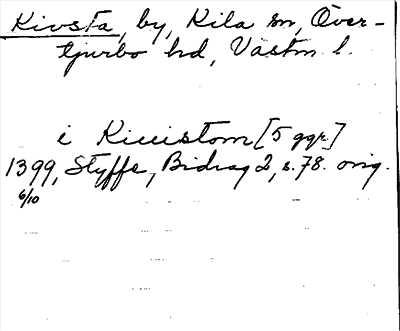 Kivsta, by, Kila sn, Över-
tjurbo hd, Västm. l.
i Kiuistom [5 ggr]
1399, Styffe, Bidrag 2, s. 78. orig.
6/10